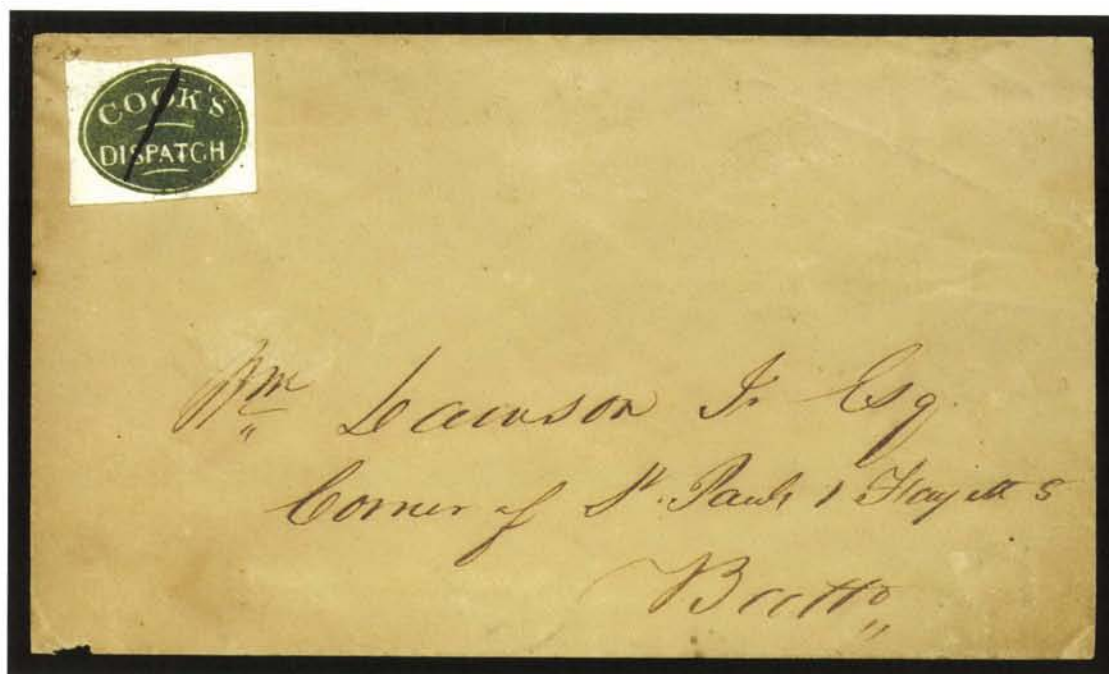 COOK'S
DISPATCH
Wm Dawson Jr Esq
Corner of St. Pauls & Fayette S
Balto